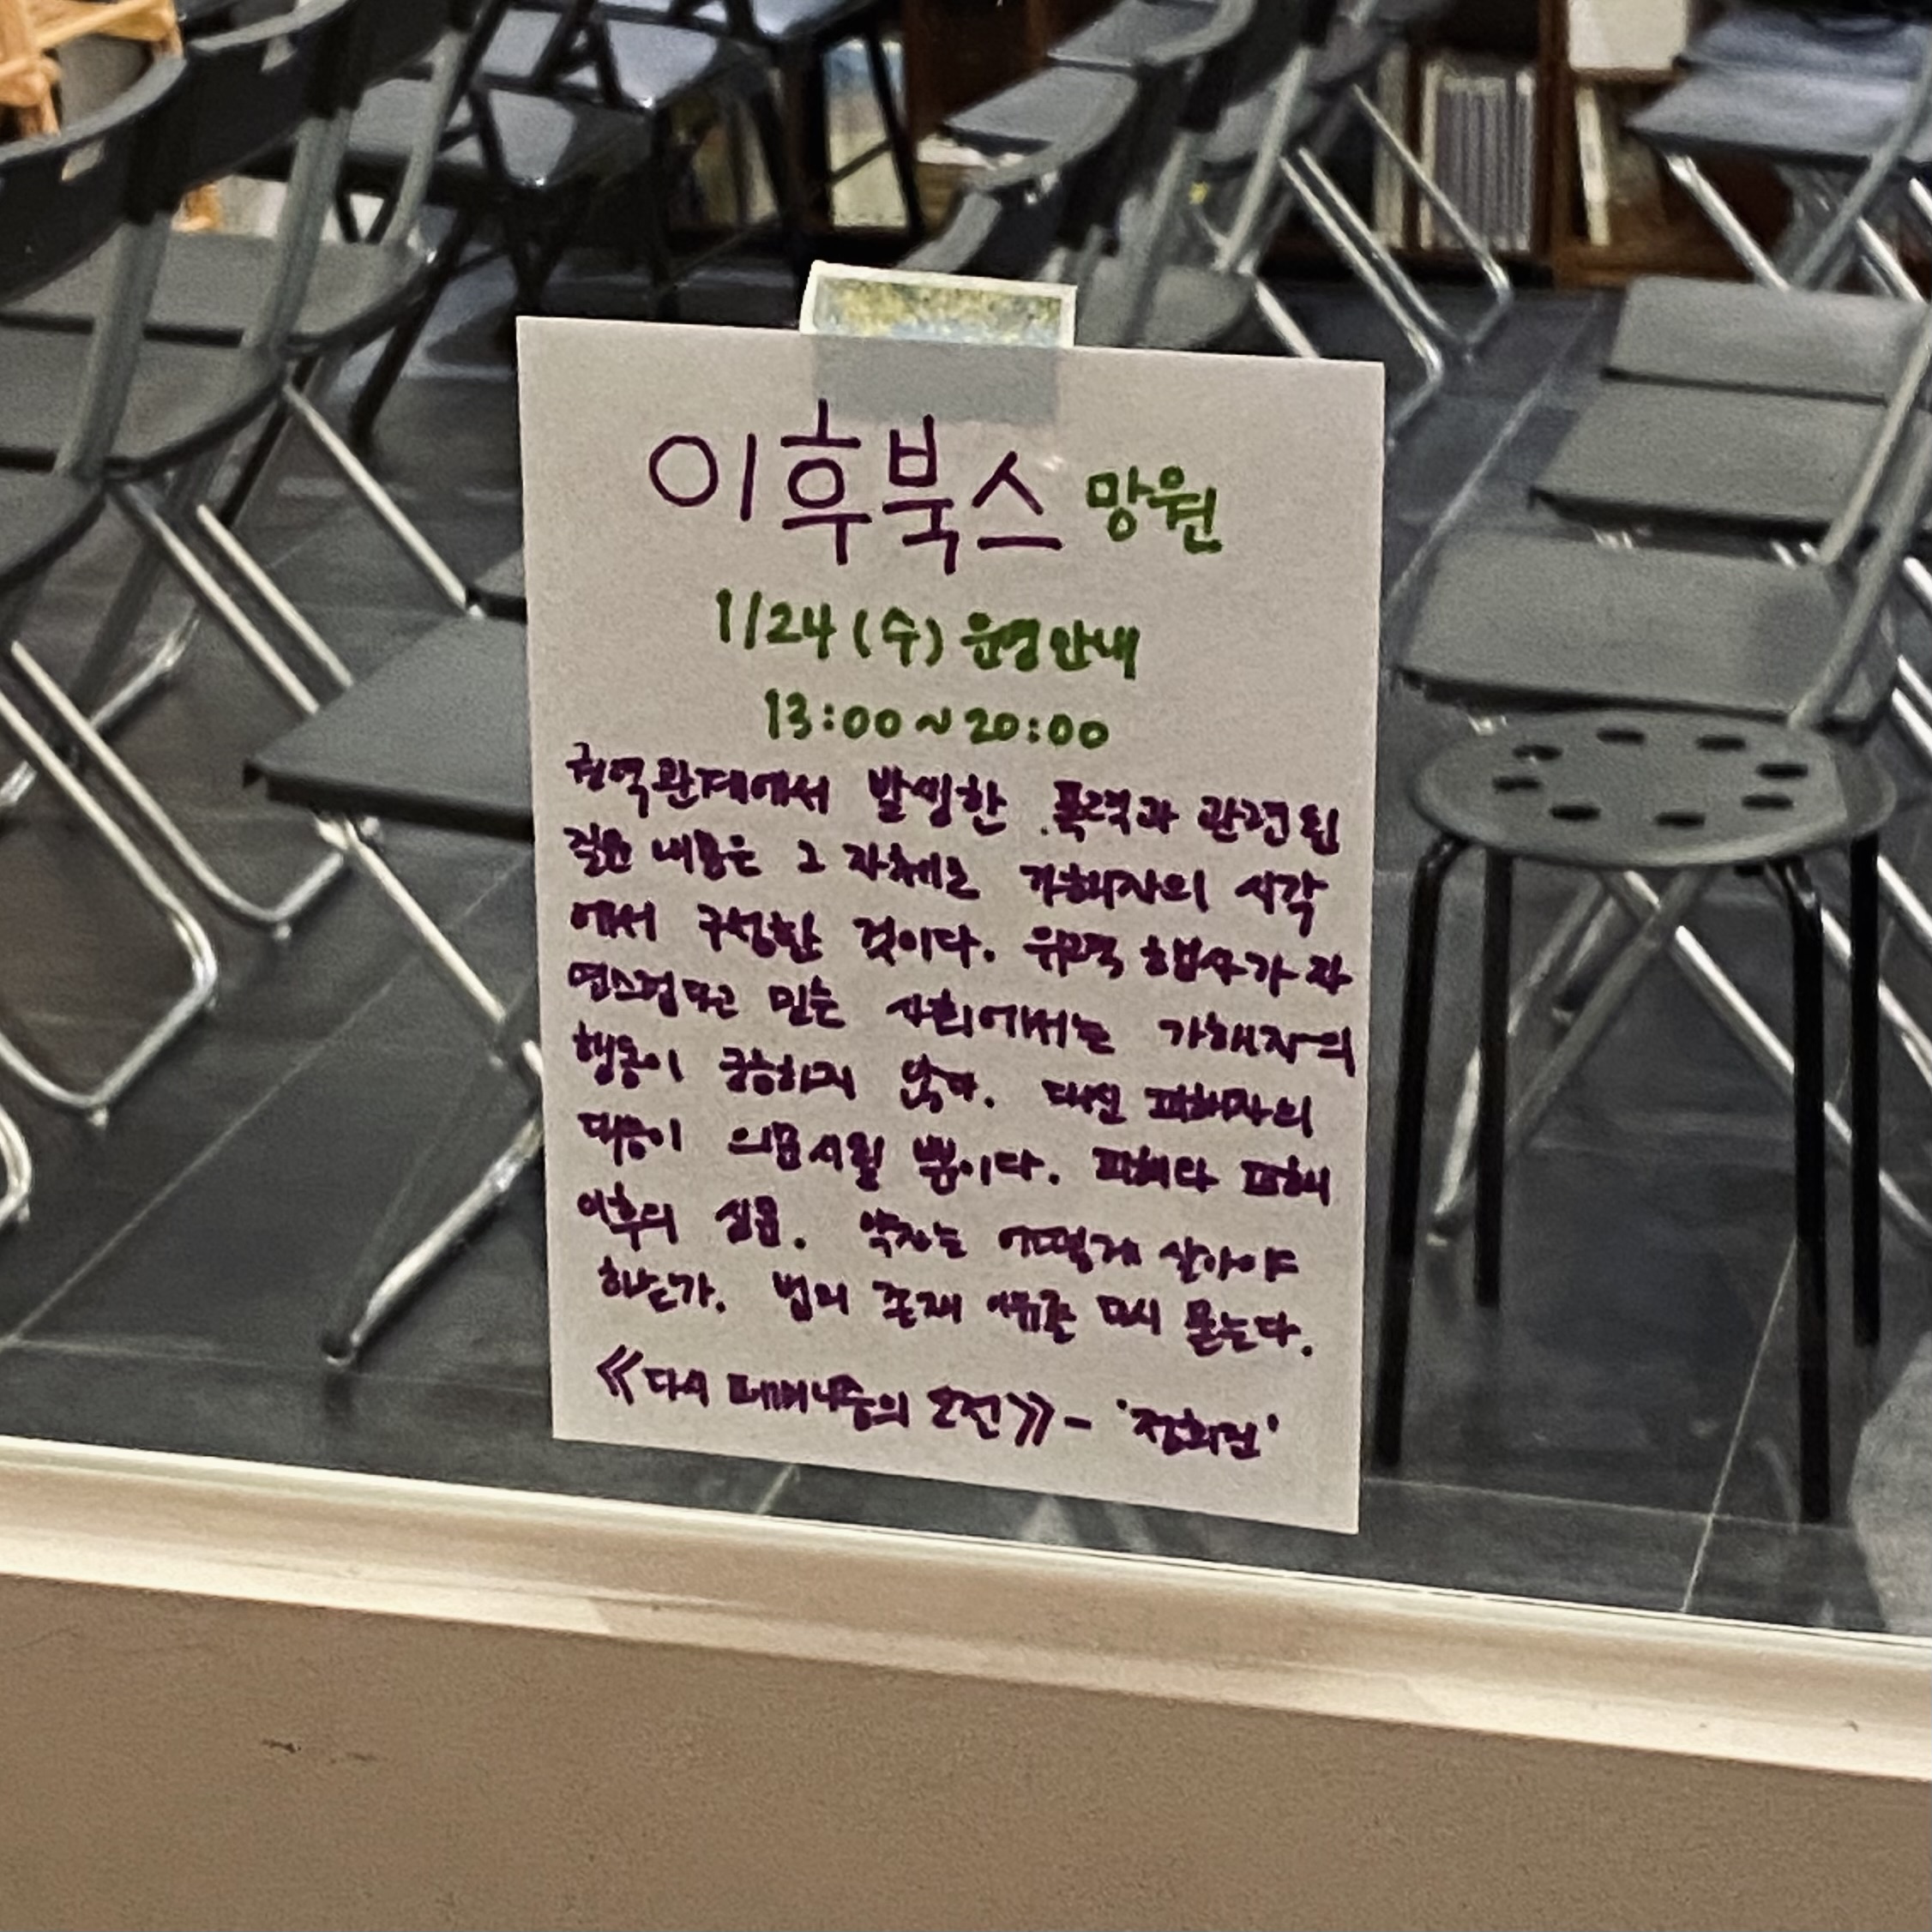 이후북스 망원
1/24 (수) 운영안내
13:00 ~ 20:00
권력관계에서 발생한 폭력과 관련된
질문 내용은 그 자체로 가해자의 시각
에서 구성한 것이다. 위력 행사가 자
연스럽다고 믿는 사회에서는 가해자의
행동이 궁금하지 않다. 대신 피해자의
대응이 의문시될 뿐이다. 피해다 피해
이후의 질문. 약자는 어떻게 살아야
하는가. 법의 존재 이유를 다시 묻는다.
《다시 페미니즘의 도전》 - '정희진'